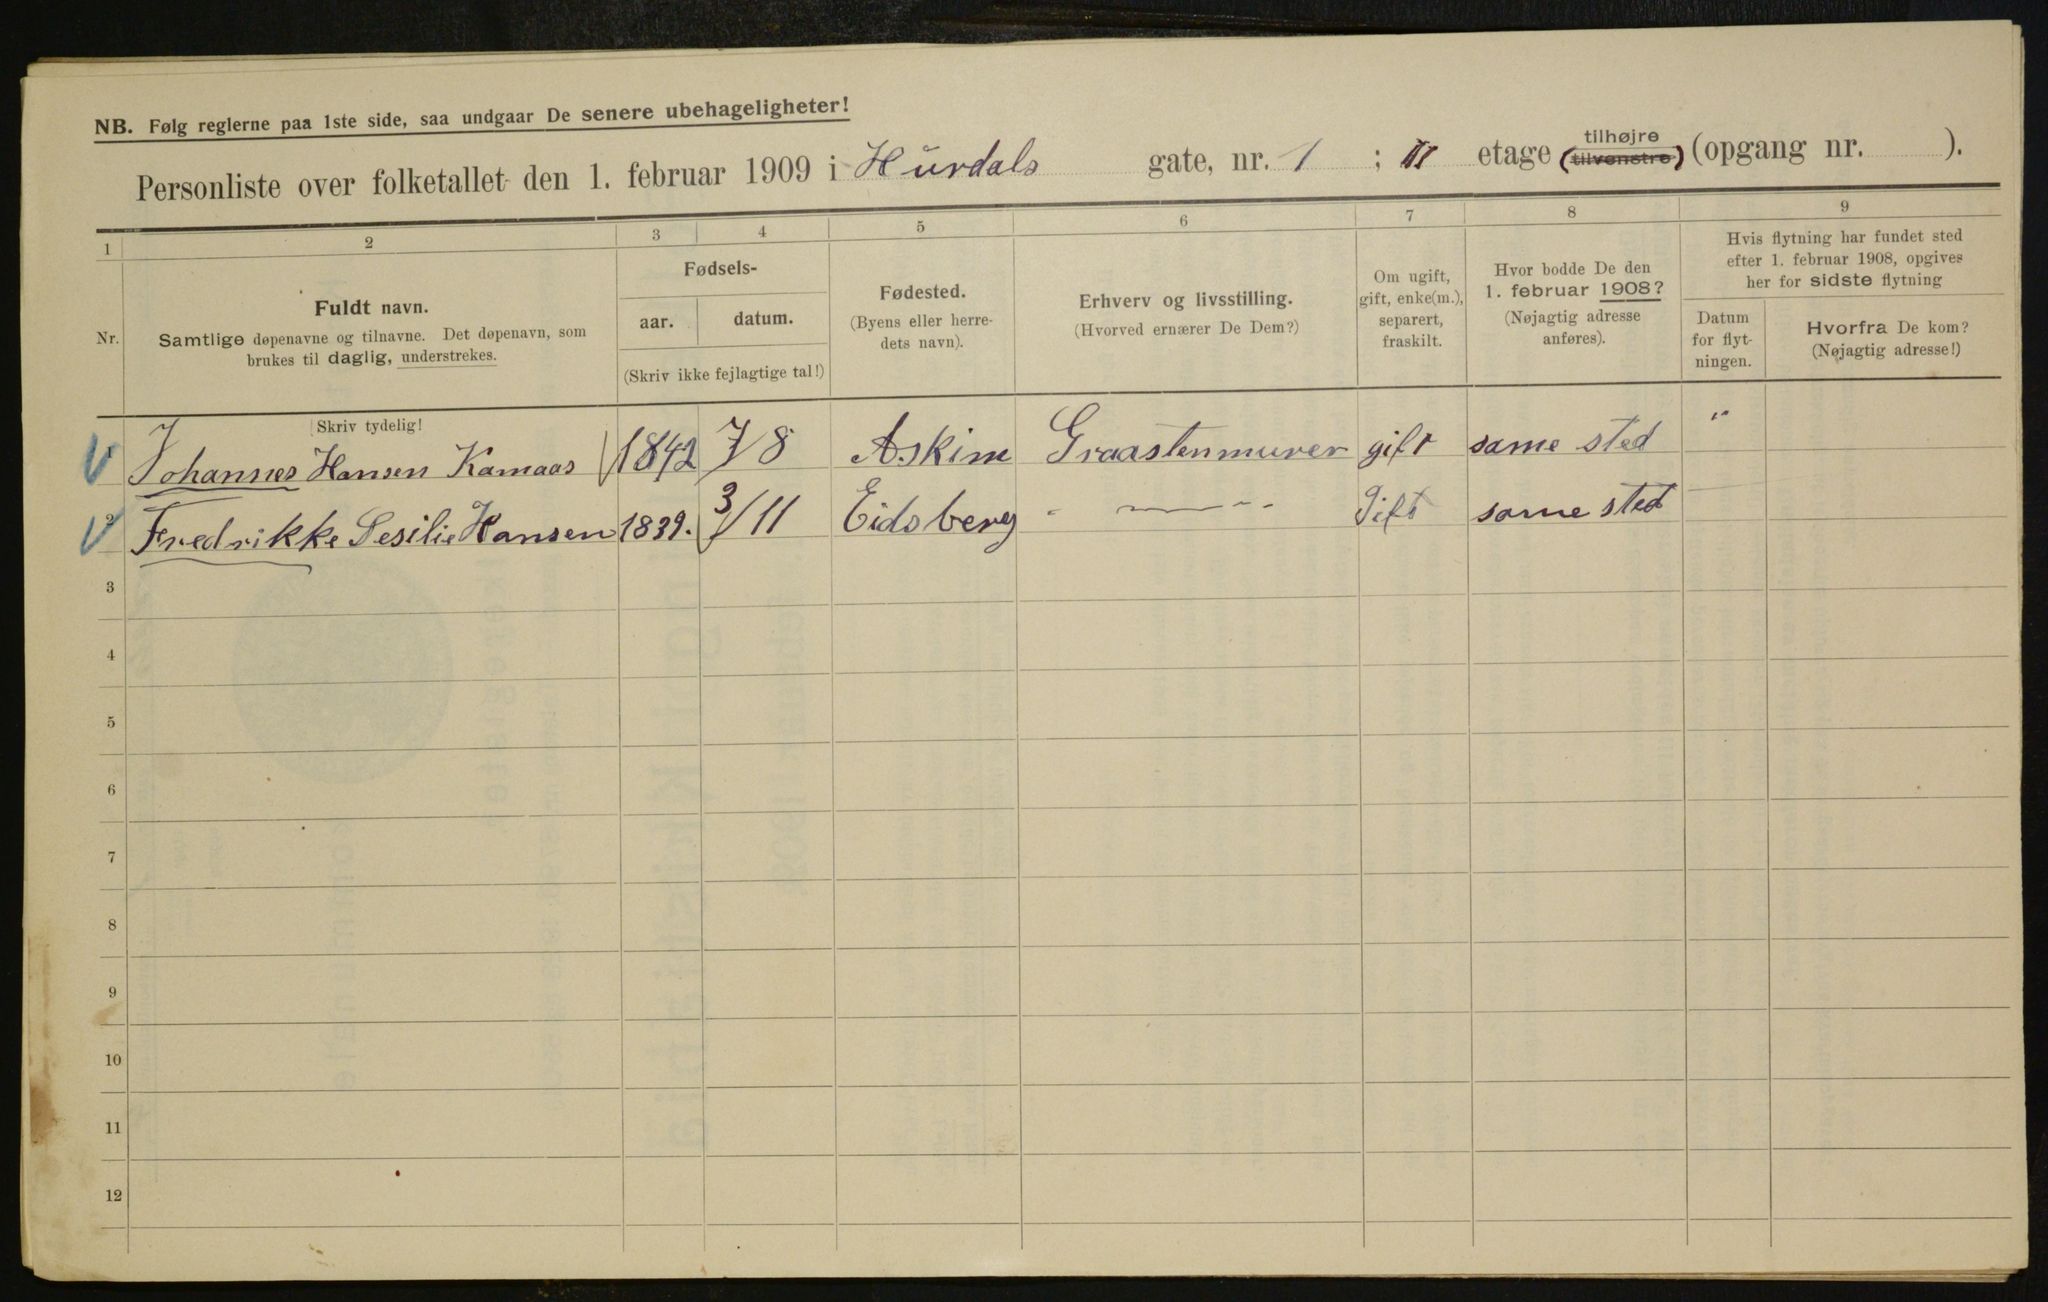 NB. Følg reglerne paa 1ste side, saa undgaar De senere ubehageligheter!
Personliste over folketallet den 1. februar 1909 i Hurdals gate, nr. 1 ; II etage (tilhøjre tilvenstre) (opgang nr. ).
1 2 3 4 5 6 7 8 9
Nr.
Fuldt navn.
Samtlige døpenavne og tilnavne. Det døpenavn, som
brukes til daglig, understrekes.
Fødsels-
aar. datum.
(Skriv ikke fejlagtige tal!)
Fødested.
(Byens eller herre-
dets navn).
Erhverv og livsstilling.
(Hvorved ernærer De Dem?)
Om ugift,
gift, enke(m.),
separert,
fraskilt.
Hvor bodde De den
1. februar 1908?
(Nøjagtig adresse
anføres).
Hvis flytning har fundet sted
efter 1. februar 1908, opgives
her for sidste flytning
Datum
for flyt-
ningen.
Hvorfra De kom?
(Nøjagtig adresse!)
Skriv tydelig!
1 Johannes Hansen Kamaas 1842 7/8 Askim Graastenmurer gift same sted "
2 Fredrikke Sesilie Hansen 1839. 3/11 Eidsberg - — - - Gift same sted
3
4
5
6
7
8
9
10
11
12